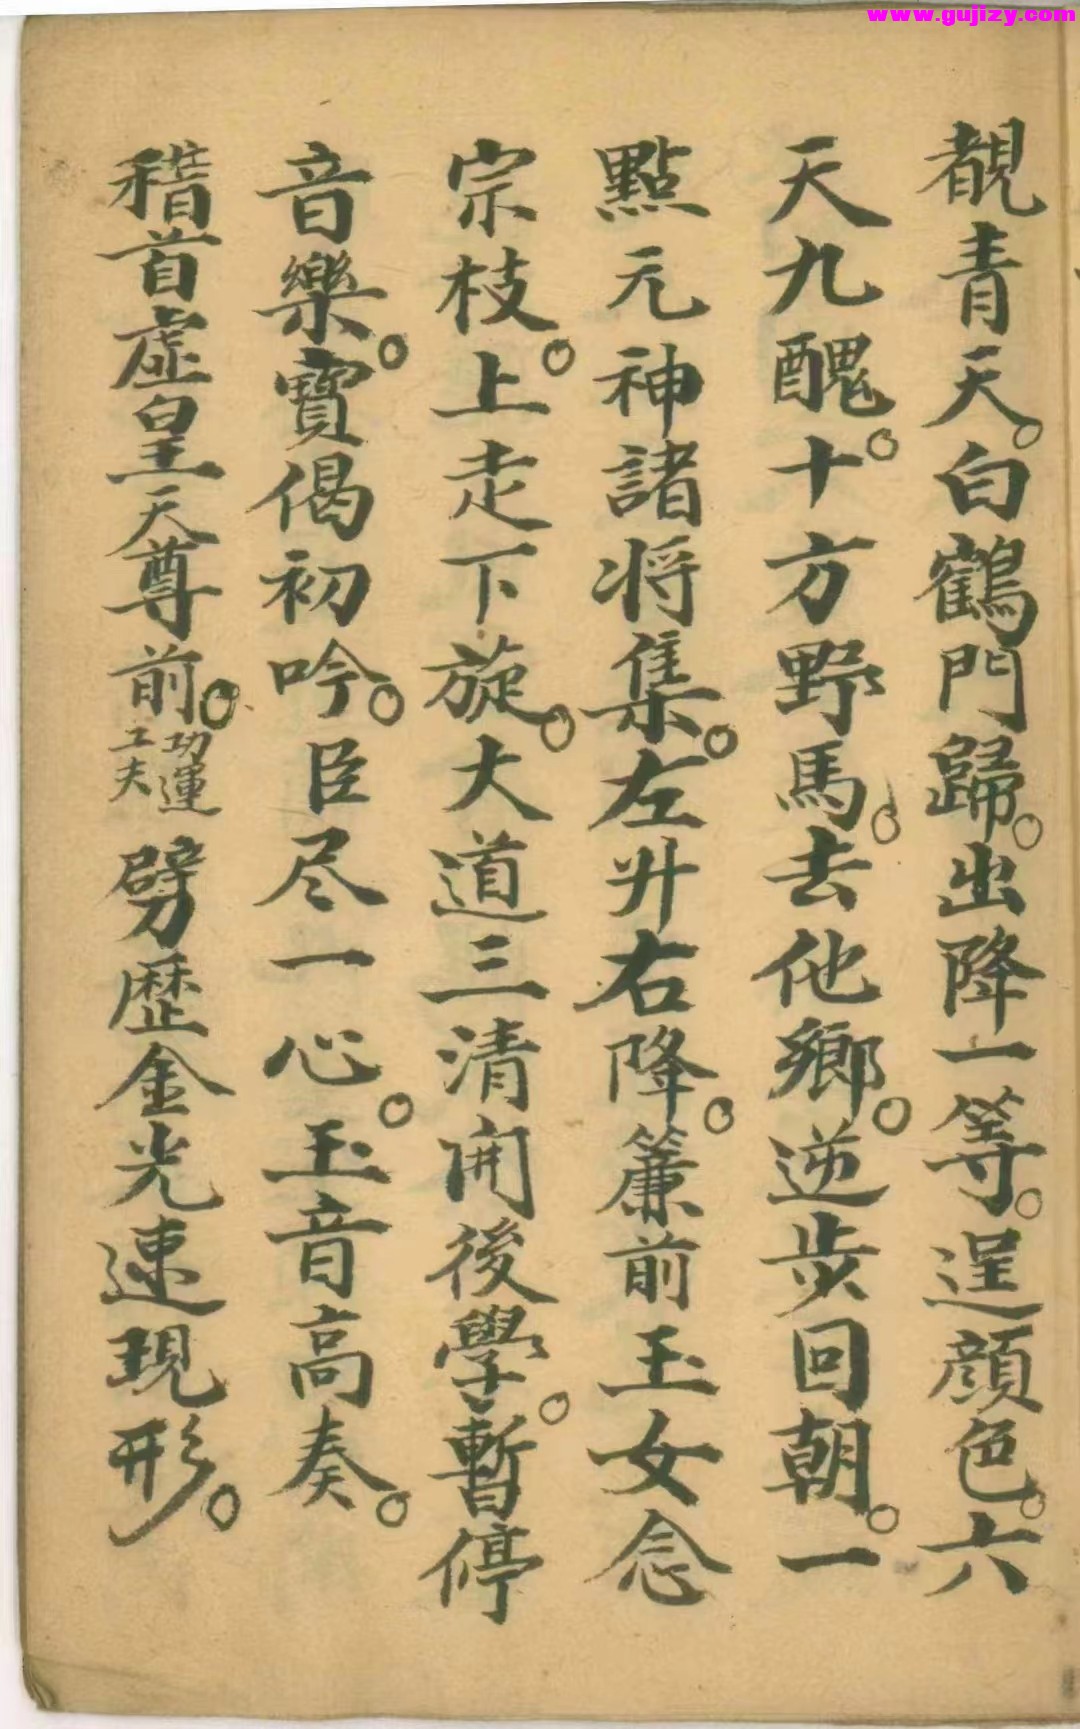 www.gujizy.com
覩青天。白鶴門歸。出降一等。逞顔色。六
天九醜。十方野馬。去他鄉。逆步回朝。一
點元神諸将集。左升右降。簾前玉女念
宗枝。上走下旋。大道三清開後學。暫停
音樂。寶偈初吟。臣尽一心。玉音高奏。
稽首虛皇天尊前。功運工夫 劈歷金光速現形。